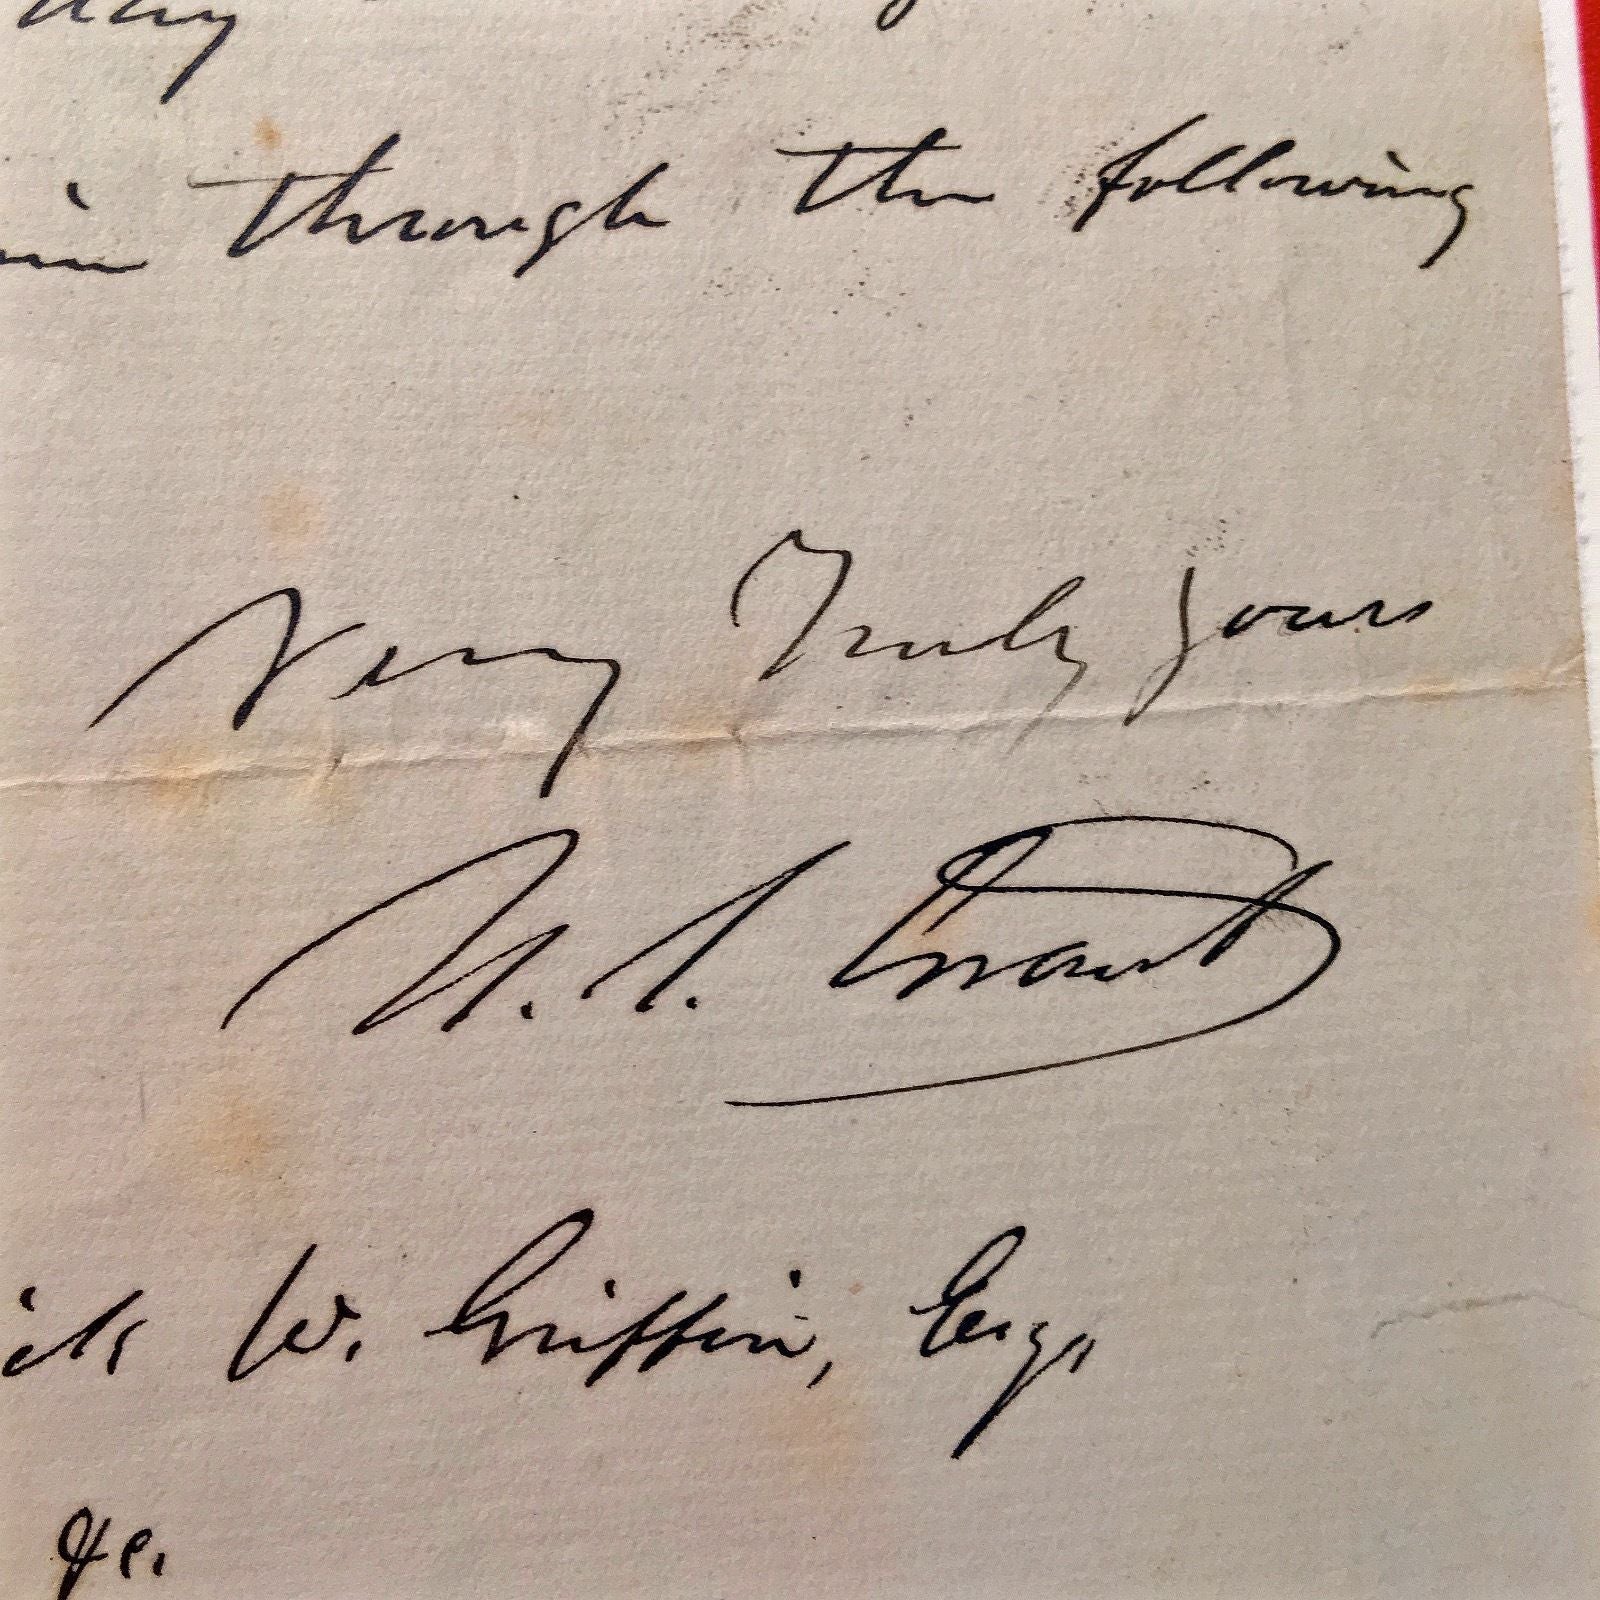 through the following
Very Truly yours
U. S. Grant
W. Griffin, Esq.
&c.